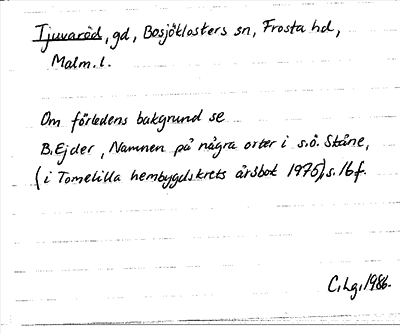 Tjuvaröd, gd, Bosjöklosters sn, Frosta hd,
Malm. l.
Om förledens bakgrund se
B. Ejder, Namnen på några orter i s.ö. Skåne,
(i Tomelilla hembygdskrets årsbok 1975), s. 16 f.
C. Lg, 1986.